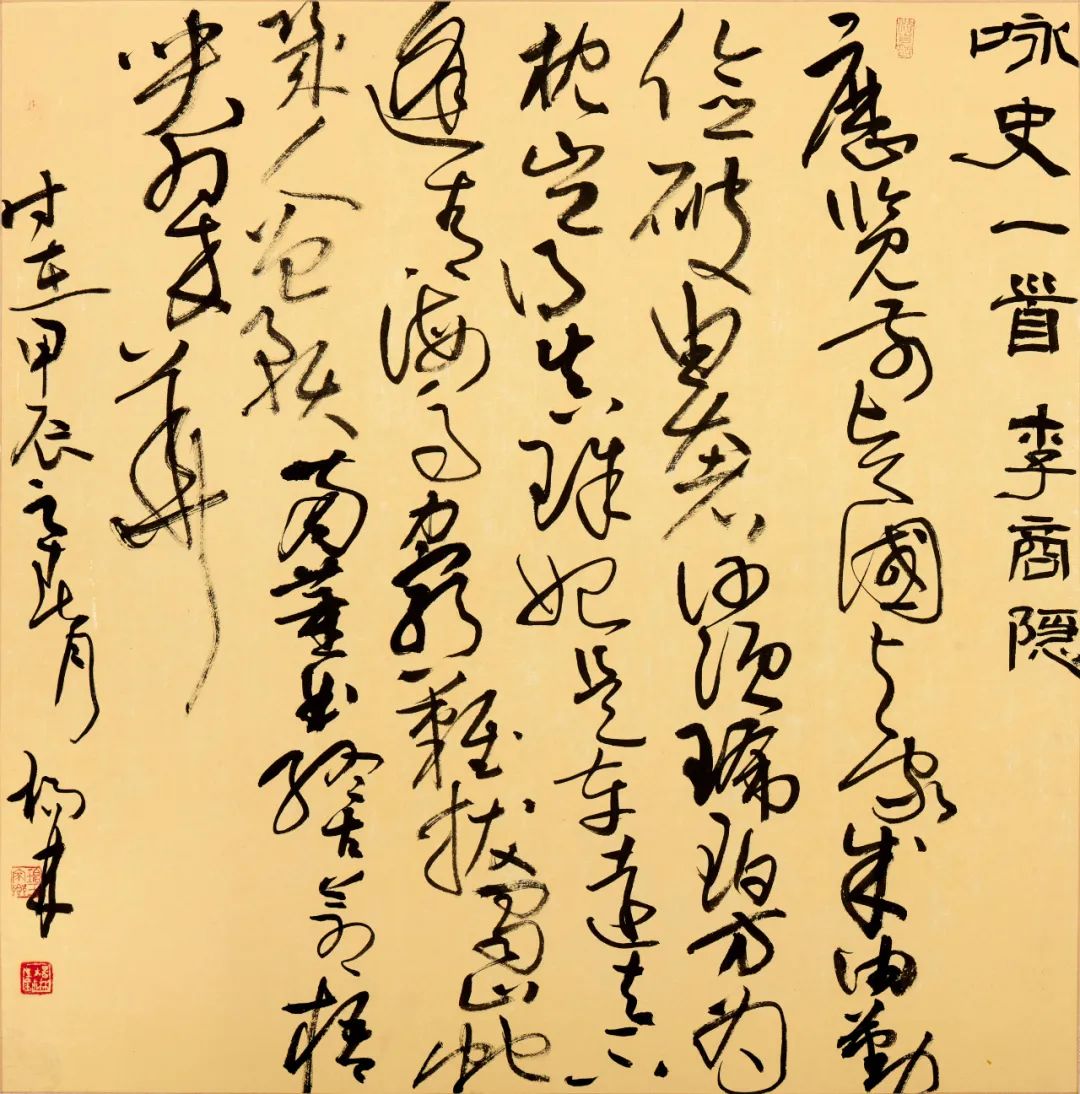 咏史一首 李商隐
歷览前贤國与家成由勤
俭破由奢何须琥珀方为
枕岂得真珠始是车运去不
逢青海马力穷難拔蜀山蛇
几人曾预南薰曲终古苍梧
哭翠華
时在甲辰之春月